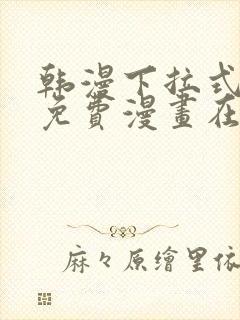 韩漫下拉式
免費漫畫在
麻々原繪里依